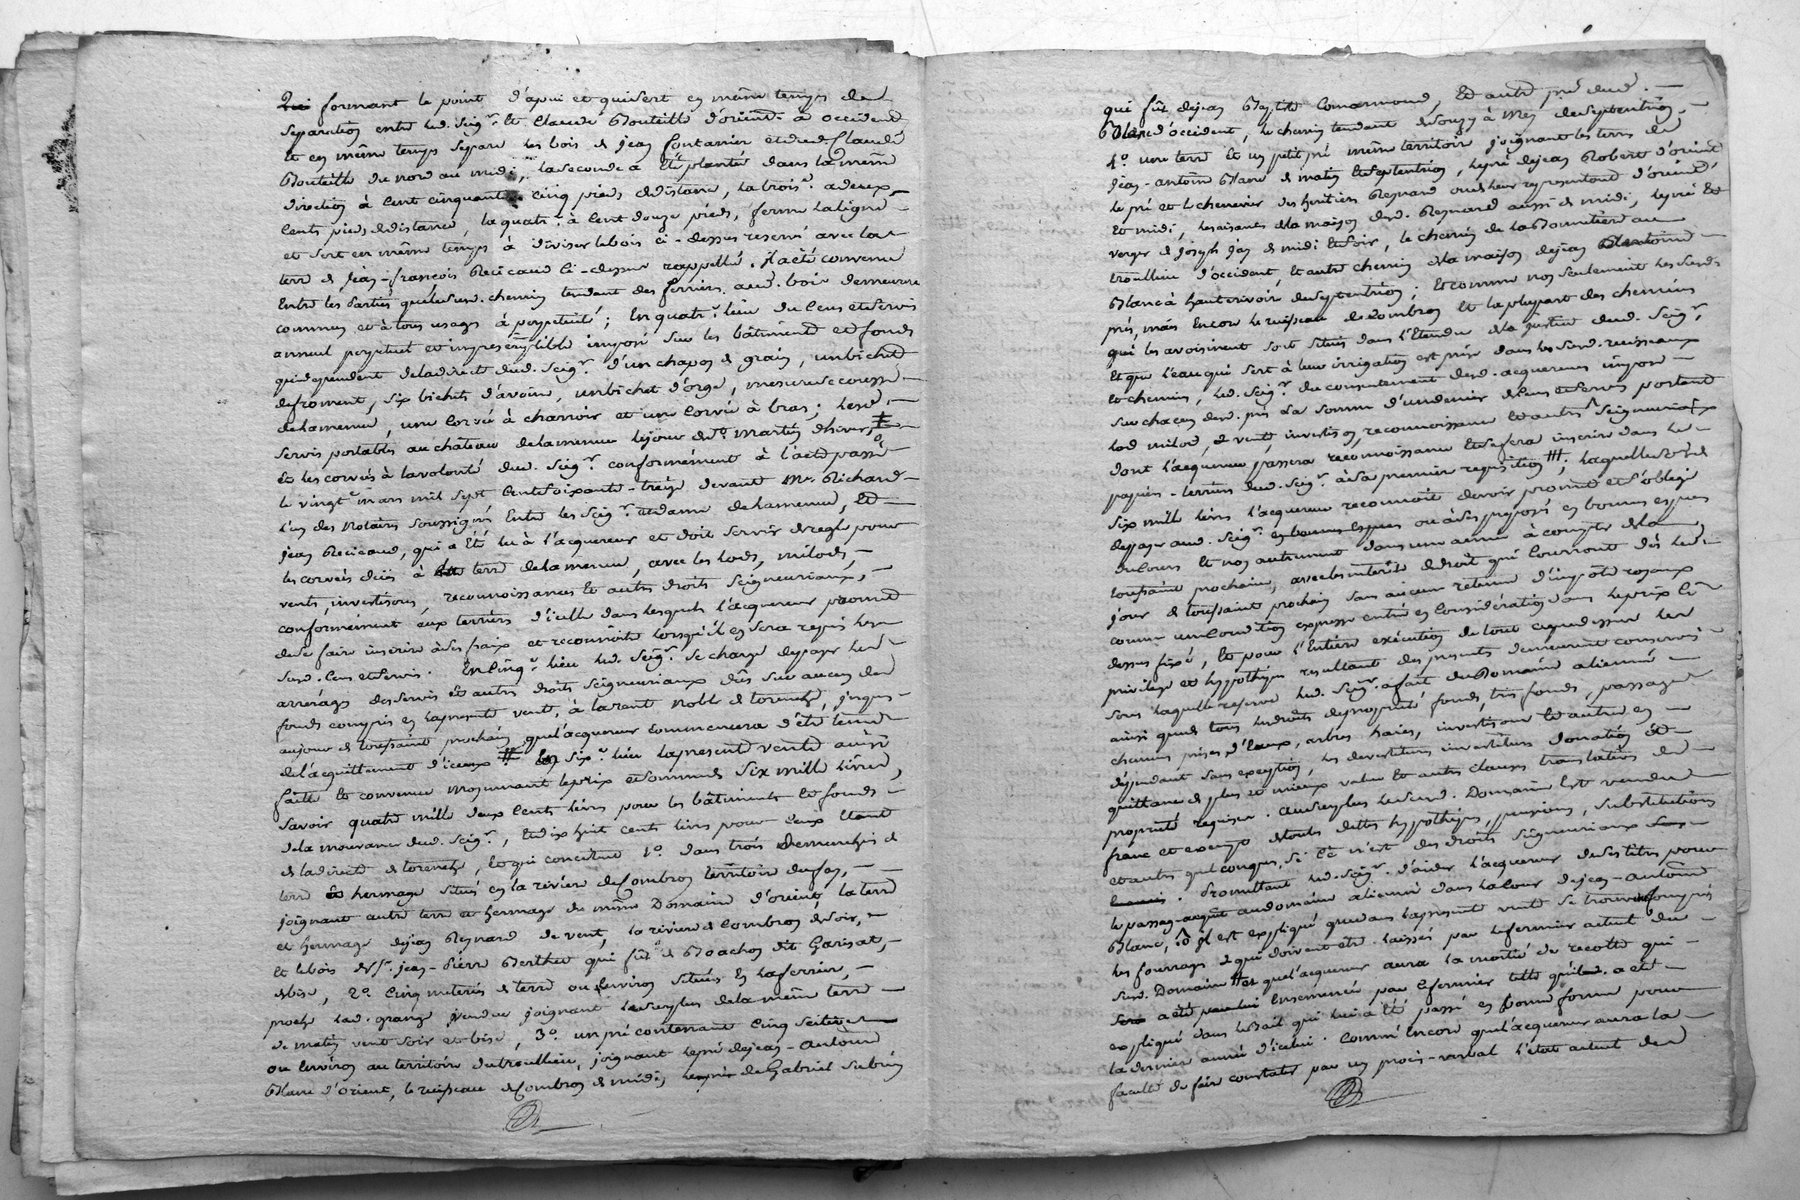 formant le point d'apui et qui sert en même temps de
séparation entre led. seigr. et Claude Bouteille d'orient à occident
et en même temps sépare les bois de jean fontannier et dud. Claude
Bouteille du nord au midi; la seconde a été plantée dans la même
direction à cent cinquante cinq pieds de distance, la trois.e a deux
cents pieds de distance, la quatr.e à cent douze pieds, ferme la ligne
et sert en même temps à diviser le bois ci-dessus reservé avec la
terre de jean-françois Recicaud ci-dessus rappellé. Il a été convenu
Entre les parties que le susd. chemin tendant des ferriers aud. bois demeurera
commun et à tous usages à perpetuité; En quatr.e lieu du cens et servis
annuel perpetuel et imprescriptible imposé sur les bâtiments et fonds
qui dependent de la directe dud. seigr. d'un chapon de grain, un bichet
de froment, six bichets d'avoine, un bichet d'orge, mesure
de lamenue, une corvée à charroir et une corvée à bras; lesd.
servis portables au château de lamenue le jour de st. martin d'hiver,
Et les corvées à la volonté dud. seigr. conformément à l'acte passé
le vingt mars mil sept cent soixante-treize devant Mr. Richard
L'un des Notaires soussignés Entre les seigr. et dame de lamenue, Et
jean Recicaud, qui a été lu à l'acquereur et doit servir de regle pour
les corvées dües à terre de lamenue, avec les lods, milods,
vents, investisons, reconnoissances et autres droits seigneuriaux,
conformément aux terriers d'icelle dans lesquels l'acquereur promet
de se faire inserire à ses fraix et reconnoître lorsqu'il en sera requis les
susd. cens et servis. En cinq.e lieu led. seigr. se charge de payer les
arrérages des servis et autres droits seigneuriaux dûs sur aucun des
fonds compris en la presente vente, à la rente noble de torenche, jusques
au jour de toussaint prochain que l'acquereur commencera d'être tenu
de l'acquittement d'iceux # En six.e lieu la presente vente ainsi
faite et convenue moyennant le prix et somme de six mille livres,
savoir quatre mille deux cent livres pour les bâtiments et fonds
de la mouvance dud. seigr., et dix huit cents livres pour ceux étant
de la directe de torenche, et qui consistent 1o. dans trois
terre et hermage situés en la riviere de Combron territoire du fay,
joignant autre terre et hermage du même Domaine d'orient, la terre
et hermage de jean Reynard de vent, la riviere de Combron de soir,
Et le bois de sr. jean-pierre Berthet qui fût de Boachon dit Garisat,
de bise, 2o. cinq meterées de terre ou environ situées en la ferriere,
proche lad. grange vendue joignant le surplus de la même terre
de matin vent soir et bise, 3o. un pré contenant cinq
ou environ au territoire du trouillieu, joignant le pré de jean-antoine
Blanc d'orient, le ruisseau de Combron de midi, de Gabriel
qui fût de jean Baptiste Comarmond, Et autre pré dud.
Blanc d'occident, le chemin tendant de souzy à mey de septentrion
4o. une terre et un petit pré même territoire joignant les terres de
jean-antoine Blanc de matin et septentrion, le pré de jean Robert d'orient
le pré et le chenevier des heritiers Reynard ou de leur representant d'orient,
Et midi, les aisances de la maison desd. Reynard aussi de midi, le pré et
verger de joseph jas de midi et soir, le chemin de la Bonnetiere au
trouillieu d'occident, et autre chemin de la maison de jean antoine
Blanc à hauterivoir de septentrion; Et comme non seulement les susd.
prés, mais encore le ruisseau de Combron et la plupart des chemins
qui les avoisinent sont situés dans l'étendue de la justice dud. seigr.
Et que l'eau qui sert à leur irrigation est prise dans les susd. ruisseaux
et chemins, led. seigr. du consentement desd. acquereurs impose
sur chacun desd. prés la somme d'un denier de cens et servis portant
lod milod, de vente, investison, reconnoissance et autres seigneuriaux
dont l'acquereur passera reconnoissance et se fera inscrire dans les
papiers-terriers dud. seigr. à sa premiere requisition #; laquelle somme de
six mille livres l'acquereur reconnoit devoir promet et s'oblige
de payer aud. seigr. en bonnes especes ou à ses preposés en bonnes especes
du cours et non autrement dans une année à compter de la
toussaint prochaine, avec les interêts de droit qui courront dès led.
jour de toussaint prochain sans aucune retenue d'impôts royaux
comme une condition expresse entrée en consideration dans le prix ci
dessus fixé, Et pour l'entiere exécution de tout ce que dessus les
privileges et hypothéques resultant des presentes demeurent conservés
sous laquelle reserve led. seigr. a fait du Domaine aliené
ainsi que de tous les droits de propriété fonds, très fonds, passages
chemins prises d'eaux, arbres haies, investison et autres en
dépendant sans exception, les devestitures investitures donation et
quittance de plus et mieux value et autres clauses translatives de
propriété requises. Au surplus le susd. Domaine est vendu
franc et exempt de toutes dettes hypothéques, pensions, substitutions
et autres quelconques, si ce n'est des droits seigneuriaux
Promettant led. seigr. d'aider l'acquereur de ses titres pour
le passage au domaine aliené dans la cour de jean-antoine
Blanc, Il est expliqué que dans la presente vente se trouvent compris
les fourrages que doivent être laissés par le fermier actuel du
susd. Domaine # et que l'acquereur aura la moitié de recolte qui
a été Ensemencé par le fermier telle qu'il a été
expliqué dans le Bail qui lui a été passé en bonne forme pour
la derniere année d'icelui. Comme encore que l'acquereur aura la
faculté de faire constater par un procès-verbal l'état actuel des